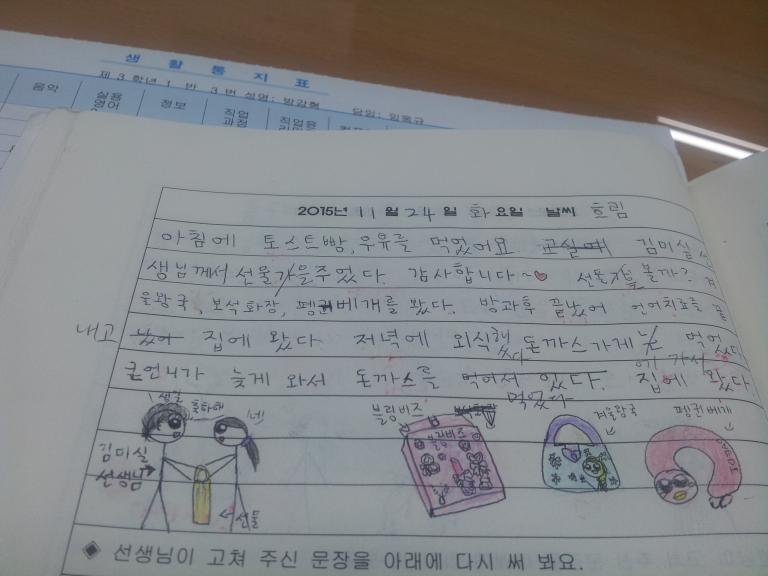 생 활 통 지 표
제 3 학년 1 반 3 번 성명: 방강혁 담임: 임옥규
음악 실용 영어 정보 직업 과정
2015년 11월 24일 화요일 날씨 흐림
아침에 토스트빵, 우유를 먹었어요. 교실에 김미실 선
생님께서 선물가을 주었다. 감사합니다~♥ 선물가을 볼까? 겨
울왕국, 보석화장, 펭귄베개를 왔다. 방과후 끝났어 언어치료를 끝
내고 났어 집에 왔다. 저녁에 외식했었다 돈까스가게 는 먹었다
에 가서
큰언니가 늦게 와서 돈까스를 먹어서 있다. 집에 왔다
먹었다
생일 축하해
네
김미실
선생님
선물
블링비즈
블링비즈
겨울왕국
펭귄베개
◆ 선생님이 고쳐 주신 문장을 아래에 다시 써 봐요.